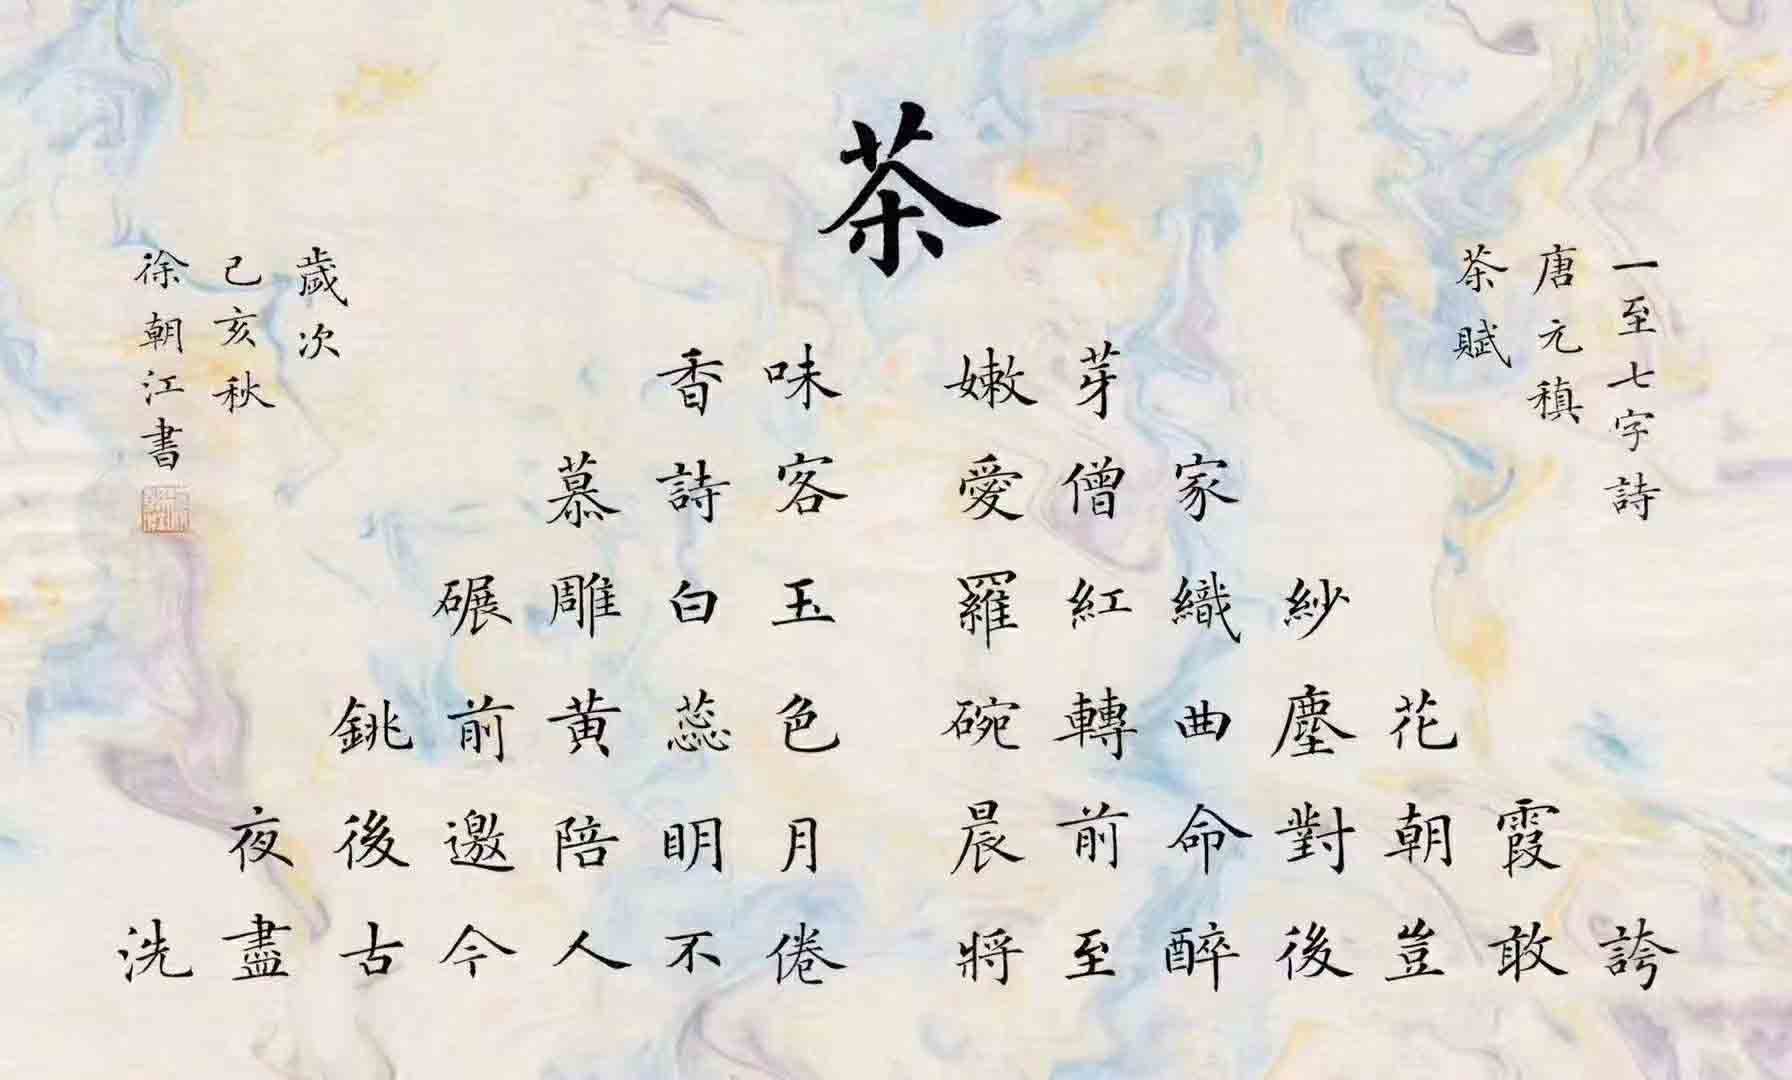 茶
香味 嫩芽
慕詩客 愛僧家
碾雕白玉 羅紅織紗
銚前黃蕊色 碗轉曲塵花
夜後邀陪明月 晨前命對朝霞
洗盡古今人不倦 將至醉後豈敢誇
一至七字詩
唐元稹
茶賦
歲次
己亥秋
徐朝江書